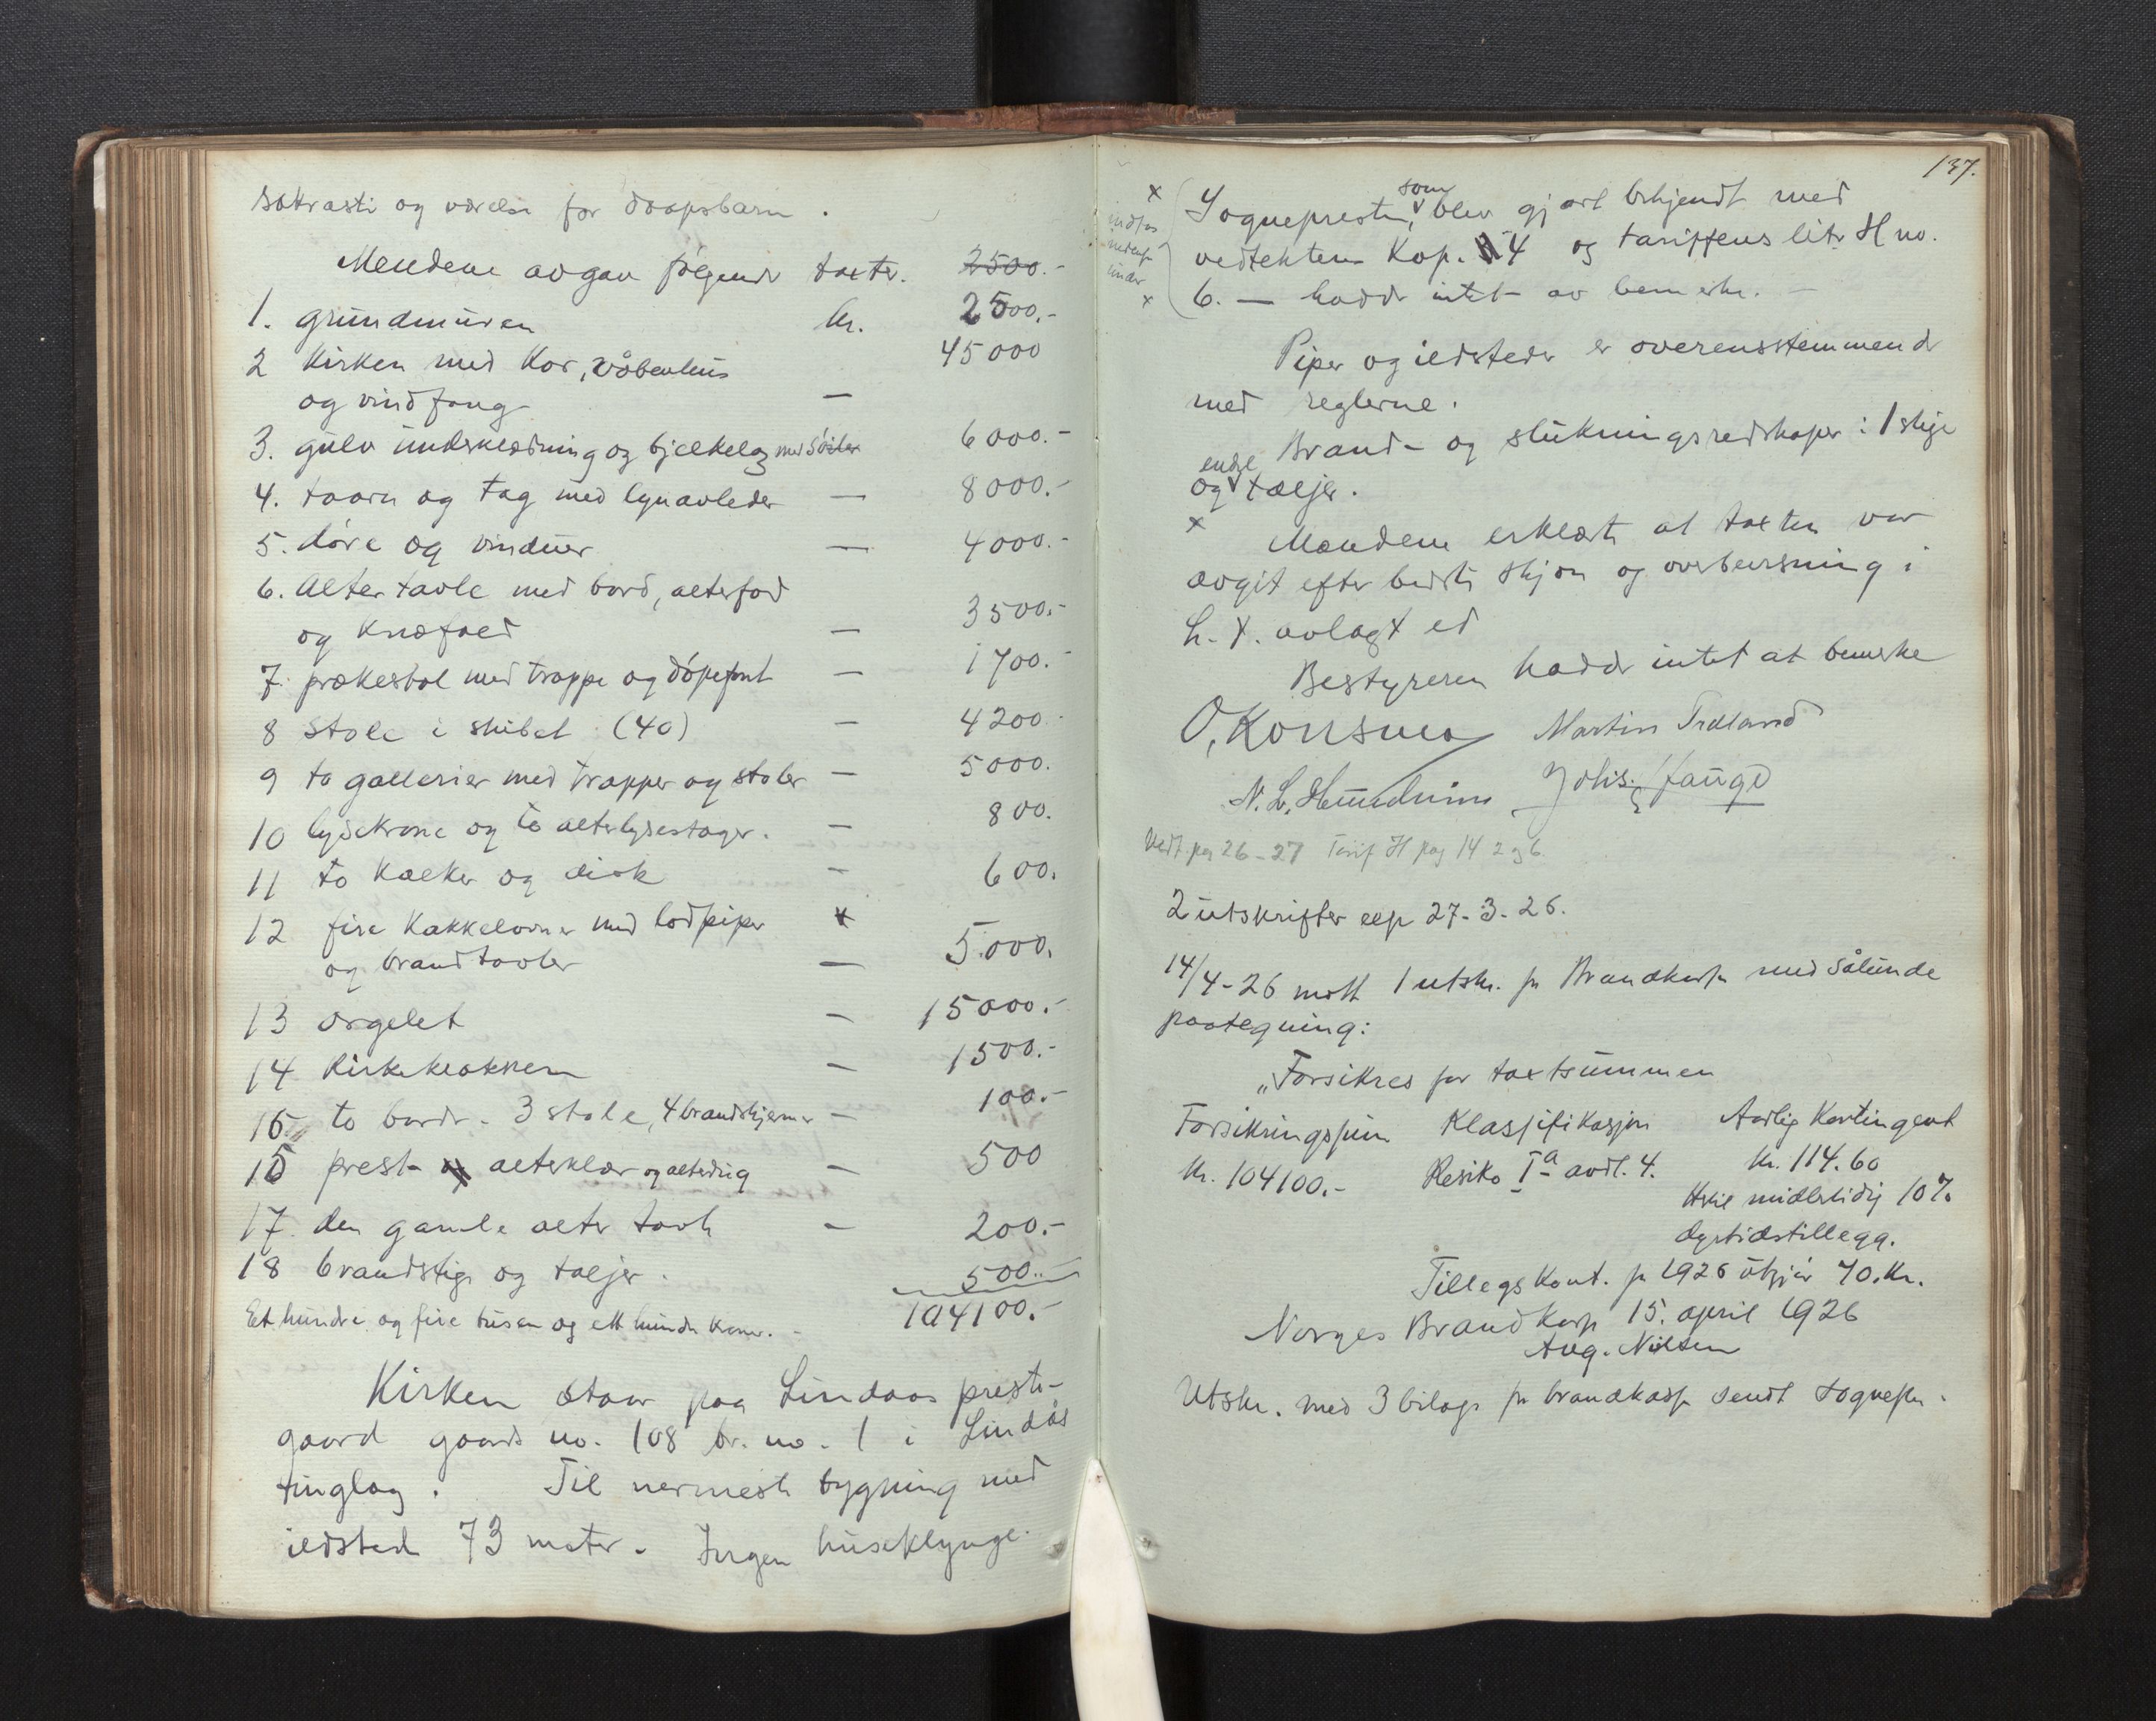 sakrasti og værelse for daapsbarn.
Mendene avgav følgende taxter. 2500.-
1. grundmuren kr. 2500.-
2 Kirken med Kor, våbenhus 45000
og vindfang —
3. gulv underklædning og bjelkelag med søiler 6000.-
4. taarn og tag med lynavleder — 8000.-
5. døre og vinduer — 4000.-
6. Altertavle med bord, alterfod
og knæfald — 3500.-
7. prækestol med trappe og døpefont — 1700.-
8 stole i skibet (40) — 4200.-
9 to gallerier med trapper og stoler — 5000.
10 lysekrone og to alterlysestager. — 800.
11 to kalker og disk — 600.
12 fire kakkelovner med lodpiper
og brandtavler — 5.000.
13 orgelet — 15000.-
14 Kirkeklokken — 1500.-
15. to borde. 3 stole, 4 brandskjermer — 100.-
16 prest- og alterklær og alterdug — 500
17. den gamle alter tavle — 200.-
18 brandstige og taljer. 500.-
Et hundre og fire tusen og ett hundre kroner. - 104100.-
Kirken staar paa Lindaas preste-
gaard gaards no. 108 br. no. 1 i Lindås
tinglag. Til nermeste bygning med
ildsted 73 meter. Ingen huseklynge.
137.
x Sognepresten, som blev gjort bekjendt med
vedtektene Kap. 4 og tariffens litr H no.
6. — hadde intet av bemerke. —
indføs
nedenf
under
x
Piper og ildsteder er overensstemmende
med reglerne.
Brand- og slukningsredskaper: 1 stige
og taljer.
x Mændene erklærte at taxten var
avgit efter bedste skjøn og overbevisning i
h. t. avlagt ed
Bestyreren hadde intet at bemerke
O. Konsmo Martin Tveland
N. L. Hundvin Johs. Hauge
Vedt. pag 26-27 Tarif H pag 14 2 og 6.
2 utskrifter exp 27-3-26.
14/4-26 mott 1 utskr. fr Brandkass med sålunde
paategning:
„Forsikres for taxtsummen
Forsikringssum Klassifikasjon Aarlig Kontingent
Kr. 104100.- Resiko Ia avdl. 4. Kr. 114.60
Hertil midlertidig 10%
dyrtidstillegg.
Tillegskont. fr 1926 utgjør 70. Kr.
Norges Brandkass 15. april 1926
Aug. Nilsen
Utskr. med 3 bilag fr brandkass sendt sognepr.